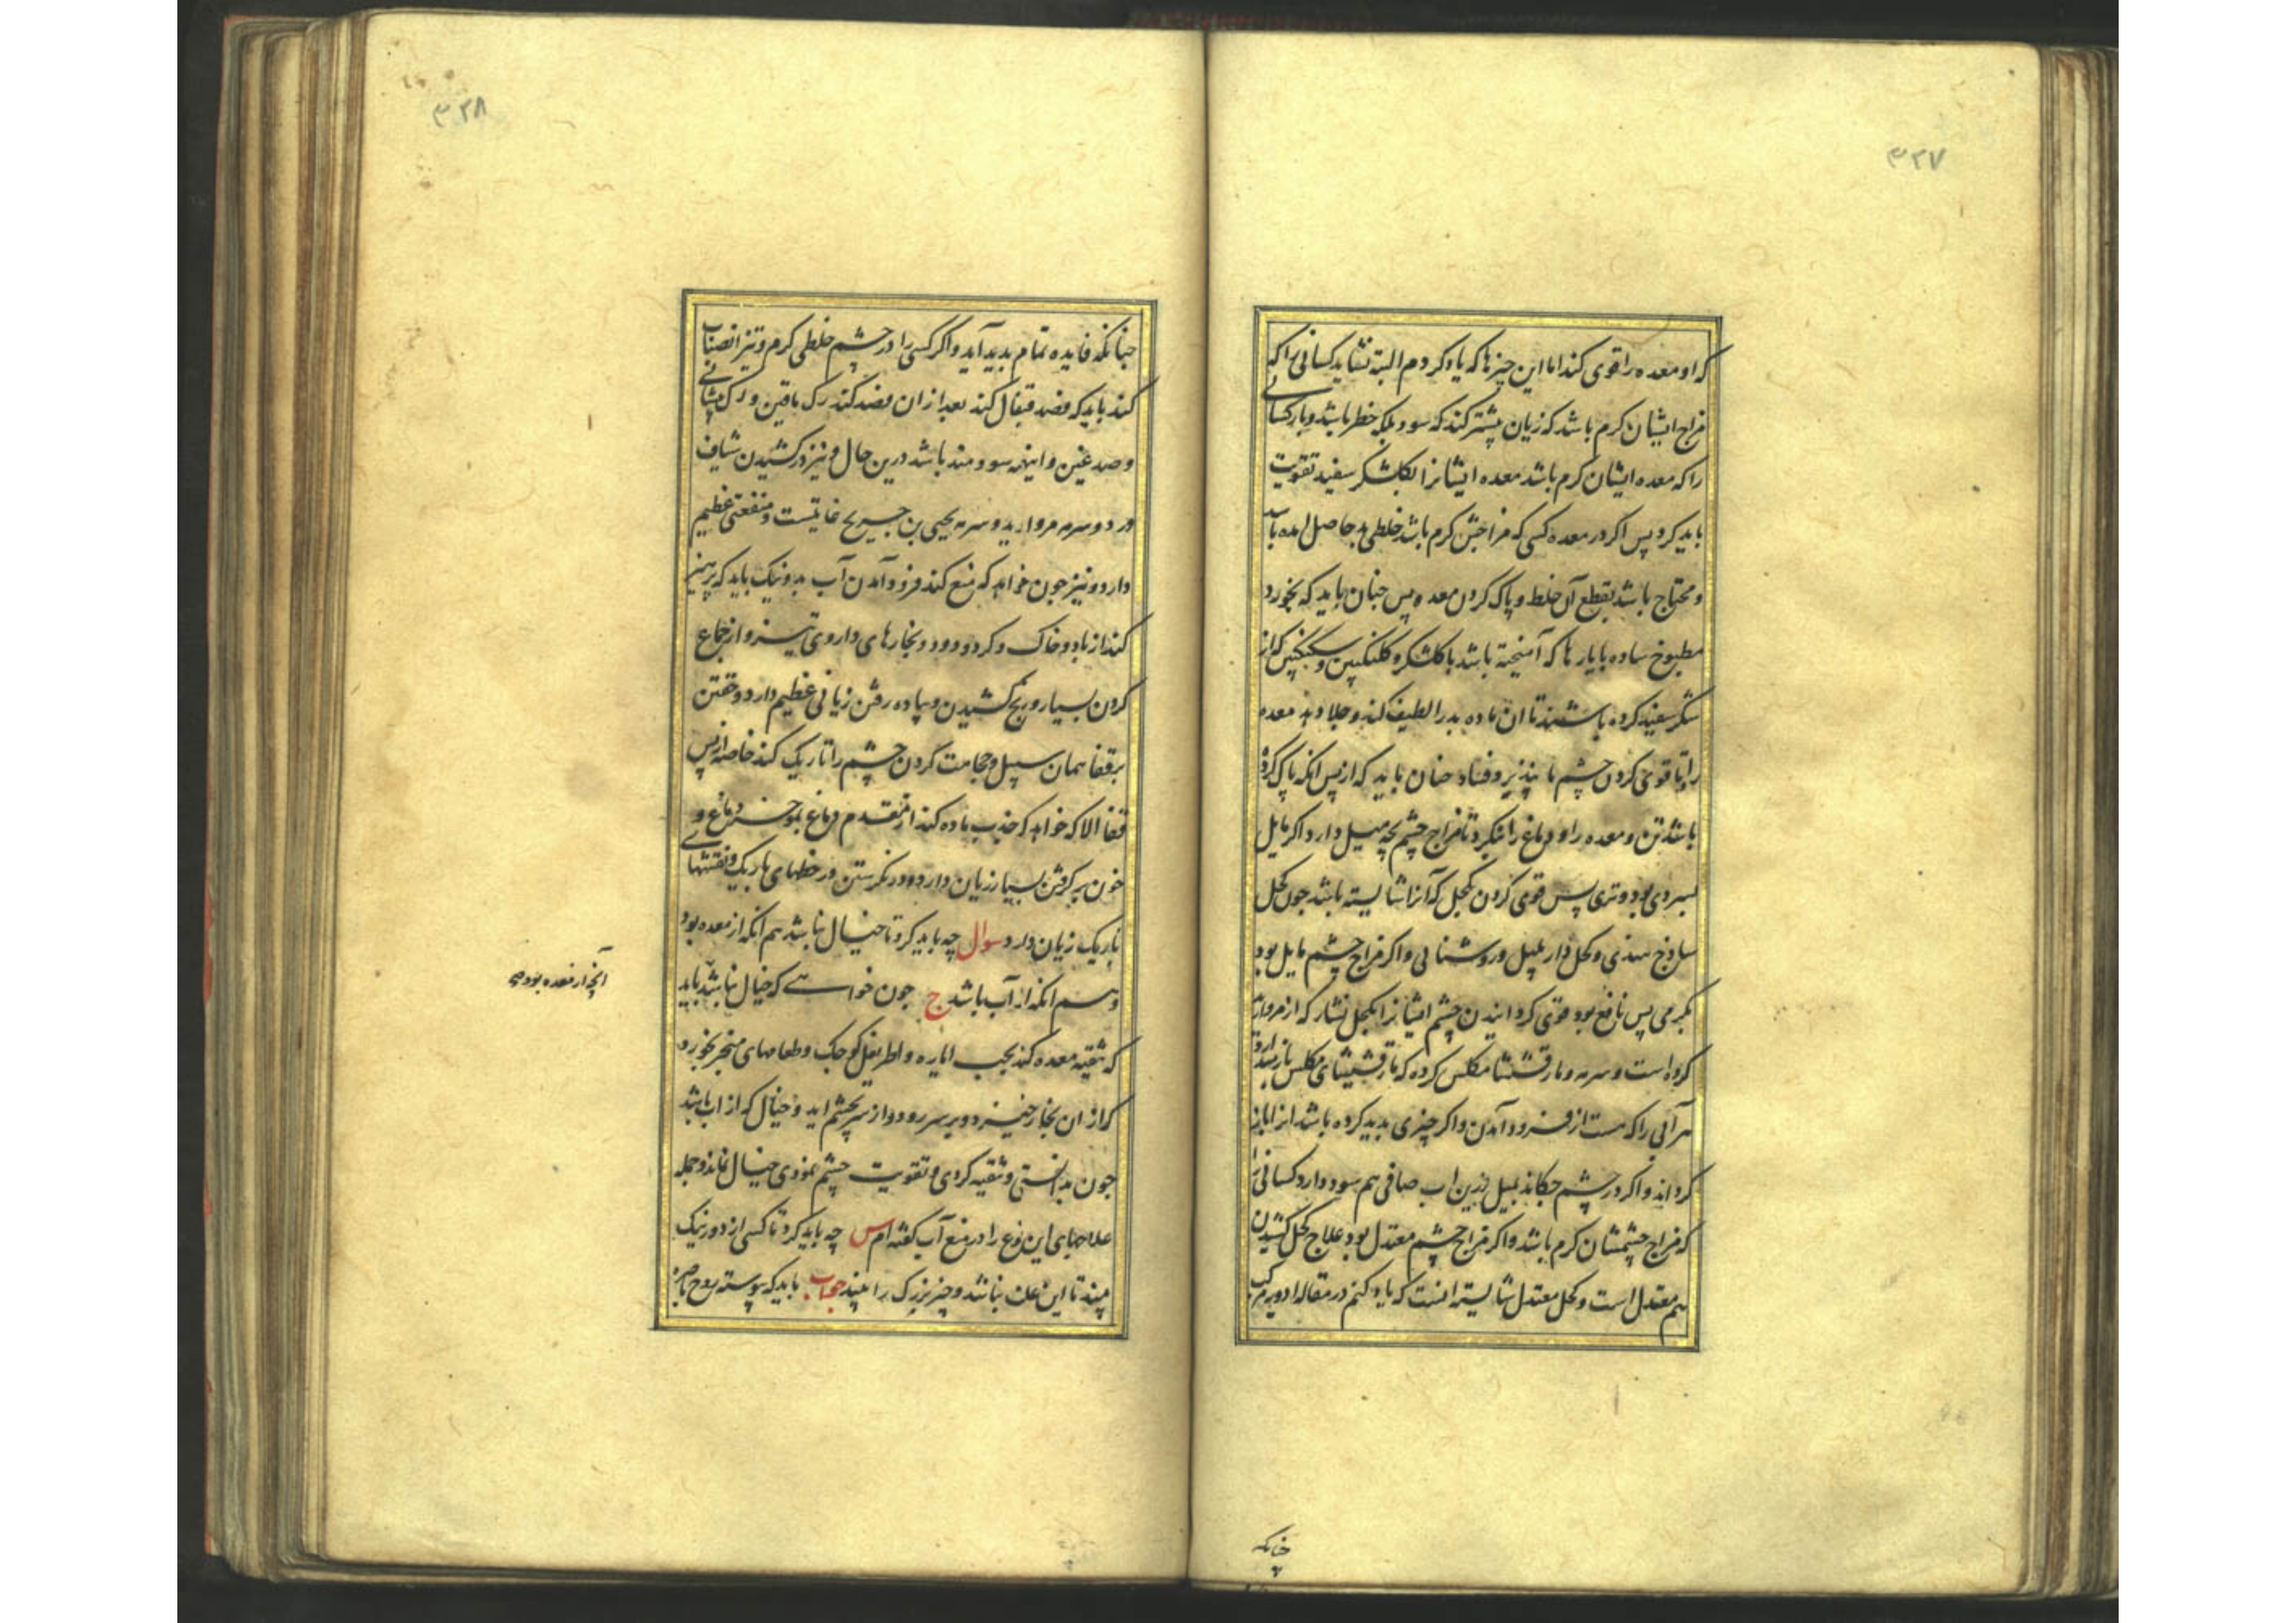 ۳۲۷
که او معده را قوی کند اما این چیزها که یاد کردم البته نشاید کسانی را که
مزاج ایشان کرم باشد که زیان بیشتر کند که سود بلکه خطر باشد و باز کسانی
را که معده ایشان کرم باشد معده ایشانرا بکلشکر سفید تقویت
باید کرد پس اکر در معده کسی که مزاجش کرم باشد خلطی بد حاصل
و محتاج باشد بقطع آن خلط و پاک کردن معده پس جنان باید که بخورد
مطبوخ ساده با یارها که آمیخته باشد با کلشکر و کلنکبین و سکنکبین که از
شکر سفید کرده باشند تا ان ماده بد را لطیف کند و جلا دهد معده
را و تا قوی کردن چشم ما پذیرفتاد جنان باید که از پس انکه پاک کرده
باشد تن و معده را و دماغ را بنکرد تا مزاج چشم بچه میل دارد اکر مایل
بسردی بود و تری پس قوی کردن بکحل که آنرا شایسته باشد جون کحل
ساذج هندی و کحل دار پلپل و روشنائی و اکر مزاج چشم مایل بود
بکرمی پس نافع بود قوی کردانیدن چشم ایشانرا بکحل نشار که از مروارید
کرده است و سرمه و مارقشیشا مکلس کرده که مارقشیشای مکلس باز میدارد
هر آبی را که هست از فرود آمدن و اکر چیزی بدید کرده باشد انرا باز
کرداند و اکر در چشم جکاند بمیل زرین اب صافی هم سود دارد کسانی را
که مزاج چشمشان کرم باشد و اکر مزاج چشم معتدل بود علاج کحل کشیدن
هم معتدل است و کحل معتدل شایسته انست که یاد کنم در مقاله ادویه مرکب
چنانکه
۳۲۸
جنانکه فایده تمام بدید آید و اکر کسی را در چشم خلطی کرم و تیز انصباب
کند باید که فصد قیفال کند بعد از ان فصد کند رک ماقین و رک پیشانی
و صدغین و اینهمه سودمند باشد درین حال و نیز در کشیدن شیاف
ورد و سرمه مروارید و سرمه یحیی بن جریح غایتست و منفعتی عظیم
دارد و نیز جون خواهد که منع کند فرود آمدن آب بد و نیک باید که پرهیز
کند از باد و خاک و کرد و دود و بخارهای داروی تیز و از جماع
کردن بسیار و رنج کشیدن و پیاده رفتن زیانی عظیم دارد و خفتن
بر قفا همان سبیل و حجامت کردن چشم را تاریک کند خاصه از پس
قفا الا که خواهد که جذب ماده کند از مقدم دماغ بموخر دماغ و
خون بر کرفتن بسیار زیان دارد و در نکرستن در خطهای باریک و نقشهای
باریک زیان دارد سوال چه باید کرد تا خیال نباشد هم انکه از معده بود
و هم انکه از آب باشد ج جون خواهی که خیال نباشد باید
که تنقیه معده کند بحب ایاره و اطریفل کوجک و طعامهای مبخر نخورد
که از ان بخار خیزد و بر سر رود و از سر بچشم اید و خیال که از اب باشد
جون بدانستی و تنقیه کردی و تقویت چشم نمودی خیال نماند و جمله
علاجهای این نوع را در منع آب کفته ام س چه باید کرد تا کسی از دور نیک
بیند تا این علت نباشد و چیز بزرک را بیند جواب باید که پیوسته روح باصره
آنچه از معده بود